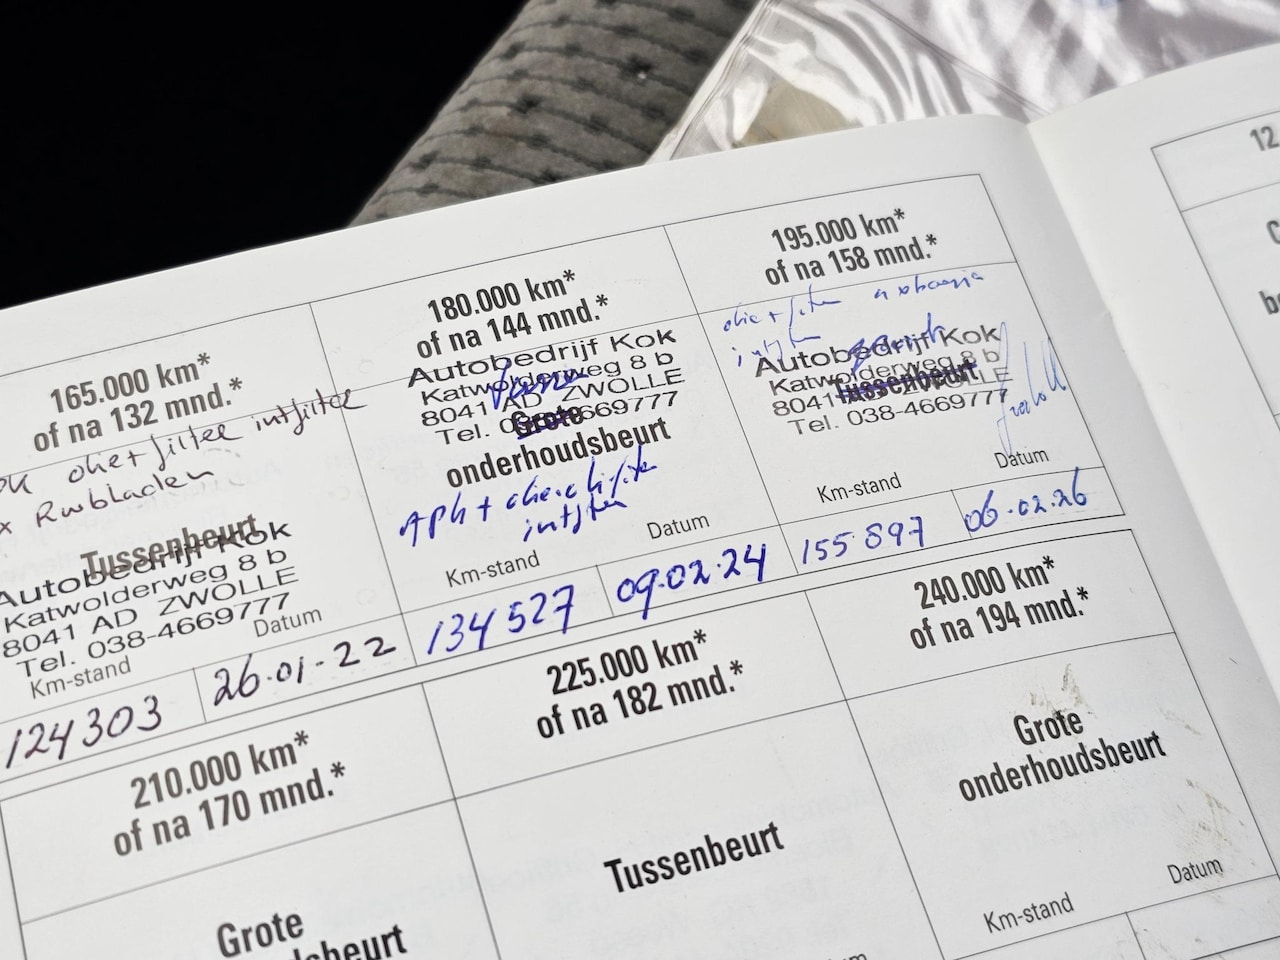 165.000 km*
of na 132 mnd.*
olie+filter intfilter
x Rwbladen
Tussenbeurt
Autobedrijf Kok
Katwolderweg 8 b
8041 AD ZWOLLE
Tel. 038-4669777
Km-stand
Datum
124303
26-01-22
180.000 km*
of na 144 mnd.*
Autobedrijf Kok
Katwolderweg 8 b
8041 AD ZWOLLE
Tel. 038-4669777
Grote
onderhoudsbeurt
Km-stand
Datum
134527
09-02-24
195.000 km*
of na 158 mnd.*
olie+filter
Autobedrijf Kok
Katwolderweg 8 b
Tussenbeurt
8041 AD ZWOLLE
Tel. 038-4669777
Km-stand
Datum
155897
06-02-26
12
210.000 km*
of na 170 mnd.*
Grote
225.000 km*
of na 182 mnd.*
Tussenbeurt
240.000 km*
of na 194 mnd.*
Grote
onderhoudsbeurt
Km-stand
Datum